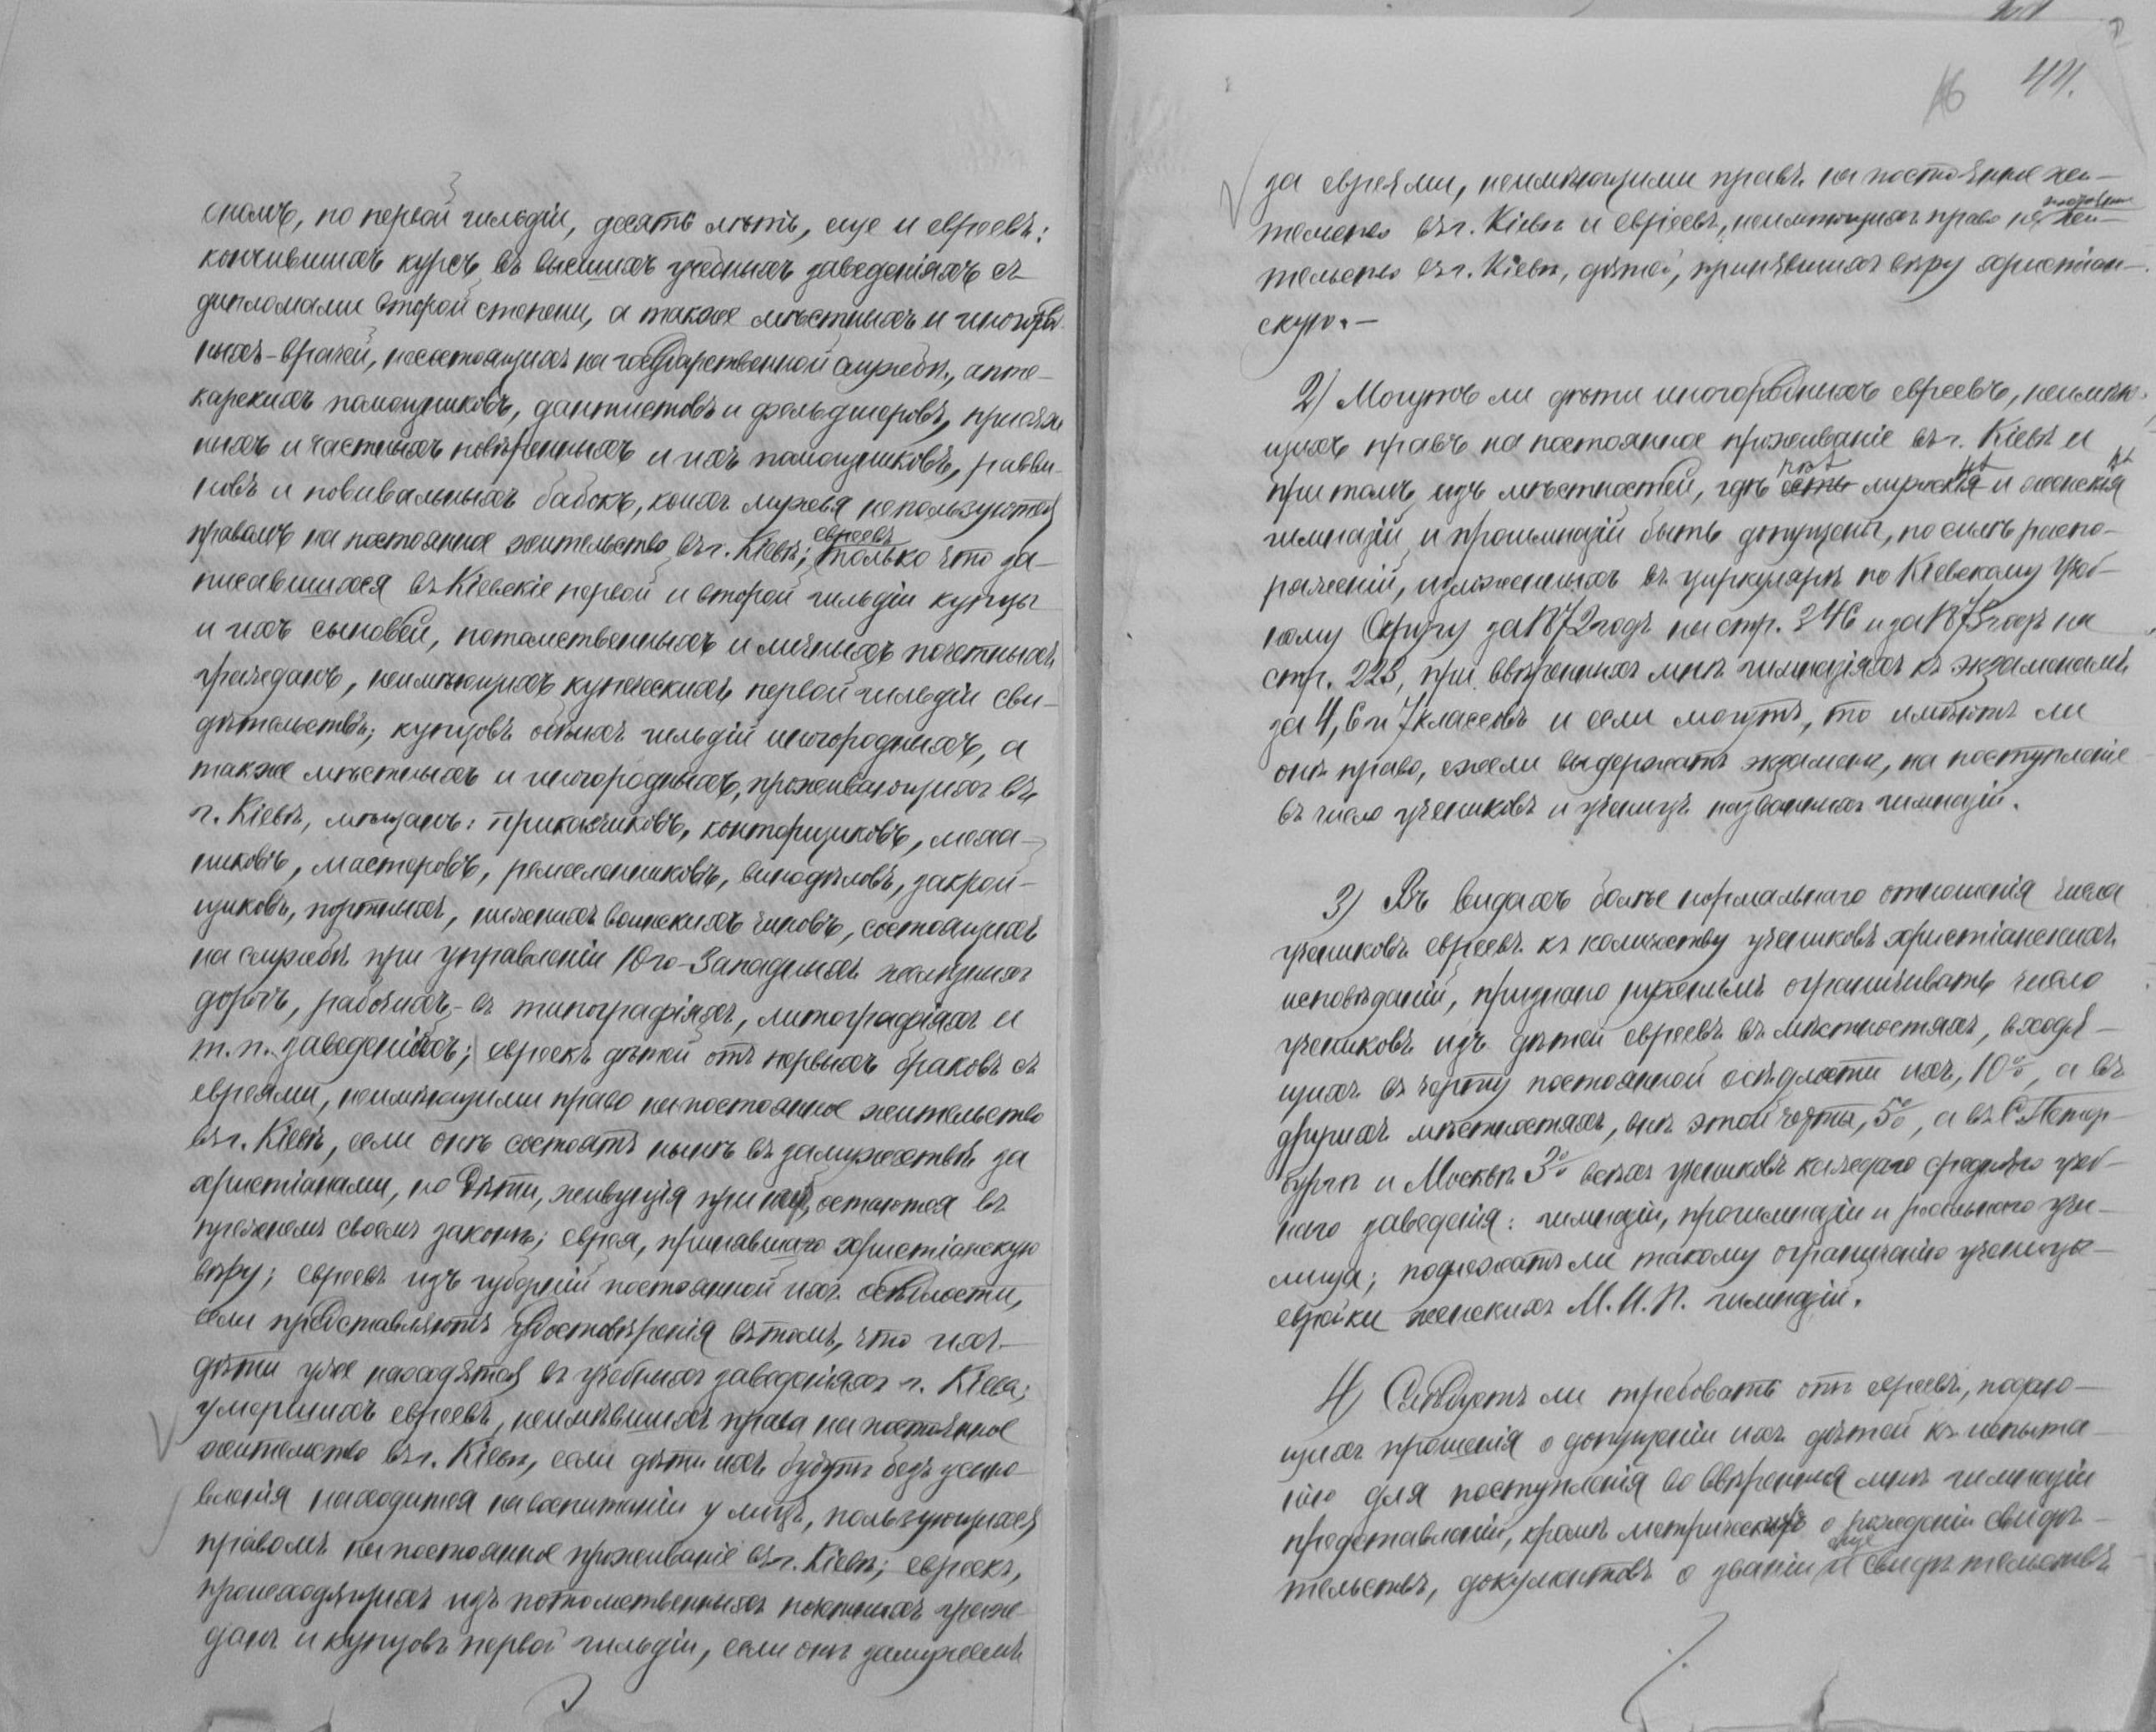 сномъ, по первой гильдіи, десять лѣтъ, еще и евреевъ:
кончившихъ курсъ въ высшихъ учебныхъ заведеніяхъ съ
дипломами второй степени, а также мѣстныхъ и иногород-
ныхъ-врачей, несостоящихъ на государственной службѣ, апте-
карскихъ помощниковъ, дантистовъ и фельдшеровъ, присяж
ныхъ и частныхъ повѣренныхъ и ихъ помощниковъ, равви-
новъ и повивальныхъ бабокъ, коихъ мужья непользуются
правомъ на постоянное жительство въ г. Кіевѣ; евреевъ только что за-
писавшихся въ Кіевскіе первой и второй гильдіи купцы
и ихъ сыновей, потомственныхъ и личныхъ почетныхъ
гражданъ, неимѣющихъ купеческихъ первой гильдіи сви-
дѣтельствъ; купцовъ обѣихъ гильдій иногородныхъ, а
также мѣстныхъ и иногородныхъ, проживающихъ въ
г. Кіевѣ, мѣщанъ: прикащиковъ, конторщиковъ, меха-
никовъ, мастеровъ, ремесленниковъ, винодѣловъ, закрой-
щиковъ, портныхъ, нижнихъ воинскихъ чиновъ, состоящихъ
на службѣ при управленіи Юго-Западныхъ желѣзныхъ
дорогъ, рабочихъ-въ типографіяхъ, литографіяхъ и
т.п. заведеніяхъ; евреекъ дѣтей отъ первыхъ браковъ съ
евреями, неимѣющими право на постоянное жительство
въ г. Кіевѣ, если онѣ состоятъ нынѣ въ замужествѣ за
христіанами, но дѣти, живущія при ней, остаются въ
прежнемъ своемъ законѣ; еврея, принявшаго христіанскую
вѣру; евреевъ изъ губерній постоянной ихъ осѣдлости,
если представляютъ удостовѣренія въ томъ, что ихъ
дѣти уже находятся въ учебныхъ заведеніяхъ г. Кіева;
умершихъ евреевъ, неимѣвшихъ права на постоянное
жительство въ г. Кіевѣ, если дѣти ихъ будутъ безъ усыно-
вленія находится на воспитаніи у лицъ, пользующихся
правомъ на постоянное проживаніе въ г. Кіевѣ; евреекъ,
происходящихъ изъ потомственныхъ почетныхъ граж-
данъ и купцовъ первой гильдіи, если онѣ замужемъ
44.
16
за евреями, неимѣющими правъ на постоянное жи-
тельство въ г. Кіевѣ и евреевъ, неимѣющихъ право на постоянное жи-
тельство въ г. Кіевѣ, дѣтей, принявшихъ вѣру христіан-
скую.-
2) Могутъ ли дѣти иногородныхъ евреевъ, неимѣю-
щихъ правъ на постоянное проживаніе въ г. Кіевѣ и
притомъ изъ мѣстностей, гдѣ есть нѣт мужскія и женскія
гимназій и прогимназій быть допущены, по силѣ распо-
ряженій, изложенныхъ въ циркулярѣ по Кіевскому Учеб-
ному Округу за 1872 годъ на стр. 346 и за 1873 годъ на
стр. 223, при ввѣренныхъ мнѣ гимназіяхъ къ экзаменамъ
за 4, 6 и 7 классовъ и если могутъ, то имѣютъ ли
онѣ право, ежели выдержатъ экзамены, на поступленіе
въ число учениковъ и ученицъ названныхъ гимназій.
3) Въ видахъ болѣе нормальнаго отношенія числа
учениковъ евреевъ къ количеству учениковъ христіанскихъ
исповѣданій, признано нужнымъ ограничивать число
учениковъ изъ дѣтей евреевъ въ мѣстностяхъ, входя-
щихъ въ черту постоянной осѣдлости ихъ, 10%, а въ
другихъ мѣстностяхъ, внѣ этой черты, 5%, а въ С.Петер-
бургѣ и Москвѣ 3% всѣхъ учениковъ каждаго средняго учеб-
наго заведенія: гимназіи, прогимназіи и реальнаго учи-
лища; подлежатъ ли такому ограниченію ученицы-
еврейки женскихъ М.Н.П. гимназій.
4) Слѣдуетъ ли требовать отъ евреевъ, подаю-
щихъ прошенія о допущеніи ихъ дѣтей къ испыта-
нію для поступленія во ввѣренныя мнѣ гимназіи
представленій, кромѣ метрическихъ о рожденіи свидѣ-
тельствъ, документовъ о званіи еще и свидѣтельствъ